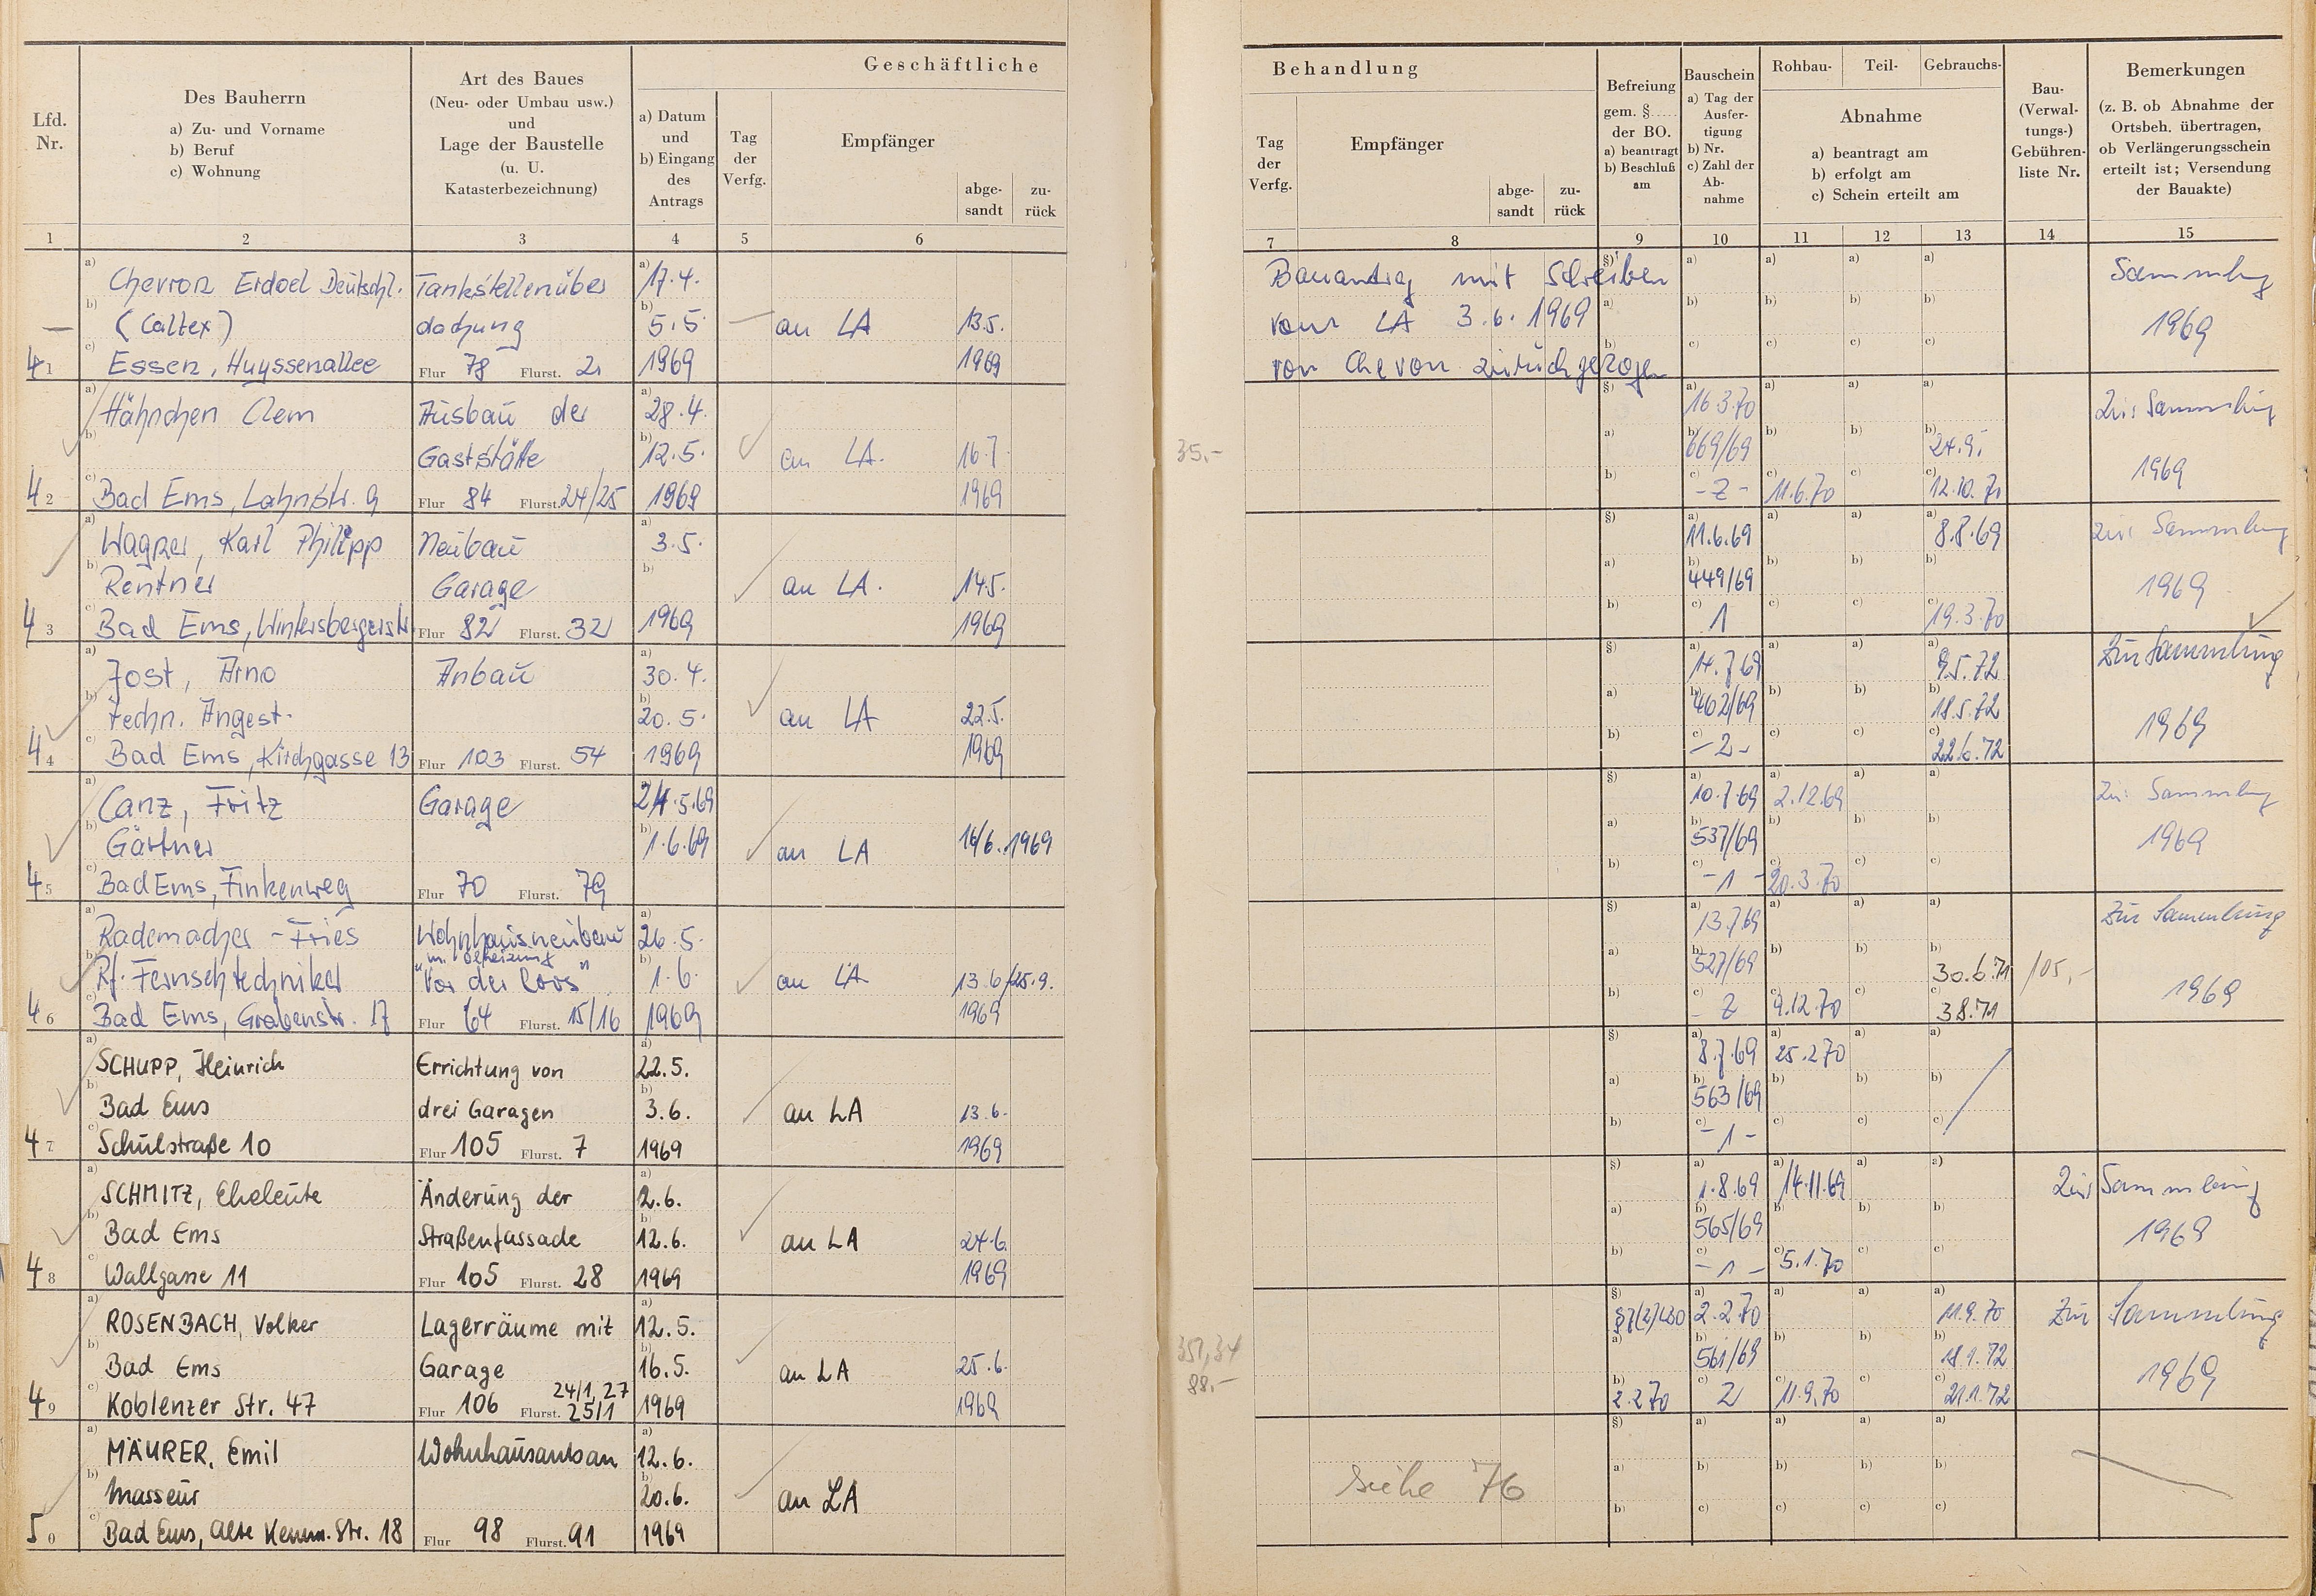 Geschäftliche
Lfd. Nr.
Des Bauherrn
a) Zu- und Vorname
b) Beruf
c) Wohnung
Art des Baues
(Neu- oder Umbau usw.)
und
Lage der Baustelle
(u. U.
Katasterbezeichnung)
a) Datum
und
b) Eingang
des
Antrags
Tag
der
Verfg.
Empfänger
abge-
sandt
zu-
rück
1 2 3 4 5 6
a) Chevron Erdoel Deutschl. Tankstellenüber a) 17.4.
b) (Caltex) dachung b) 5.5. — an LA 13.5.
41 c) Essen, Huyssenallee Flur 78 Flurst. 2 1969 1969
a) Hähnchen Clem Ausbau der a) 28.4.
b) Gaststätte b) 12.5. an LA. 16.7.
42 c) Bad Ems, Lahnstr. 9 Flur 84 Flurst. 24/25 1969 1969
a) Wagner, Karl Philipp Neubau a) 3.5.
b) Rentner Garage b) an LA. 14.5.
43 c) Bad Ems, Wintersbergerstr. Flur 82 Flurst. 32 1969 1969
a) Jost, Arno Anbau a) 30.4.
b) techn. Angest. b) 20.5. an LA 22.5.
44 c) Bad Ems, Kirchgasse 13 Flur 103 Flurst. 54 1969 1969
a) Canz, Fritz Garage 24.5.69
b) Gärtner b) 1.6.69 an LA 16/6.1969
45 c) Bad Ems, Finkenweg Flur 70 Flurst. 79
a) Rademacher - Fries Wohnhausneubau a) 26.5.
m. Ölheizung
b) Rf. Fernsehtechniker "Vor der Loos" b) 1.6. an LA 13.6/25.9.
46 c) Bad Ems, Grabenstr. 17 Flur 64 Flurst. 15/16 1969 1969
a) SCHUPP, Heinrich Errichtung von a) 22.5.
b) Bad Ems drei Garagen b) 3.6. an LA 13.6.
47 c) Schulstraße 10 Flur 105 Flurst. 7 1969 1969
a) SCHMITZ, Eheleute Änderung der a) 2.6.
b) Bad Ems Straßenfassade b) 12.6. an LA 24.6.
48 c) Wallgasse 11 Flur 105 Flurst. 28 1969 1969
a) ROSENBACH, Volker Lagerräume mit a) 12.5.
b) Bad Ems Garage b) 16.5. an LA 25.6.
24/1, 27
49 c) Koblenzer Str. 47 Flur 106 Flurst. 25/1 1969 1969
a) MÄURER, Emil Wohnhausanbau a) 12.6.
b) Masseur b) 20.6. an LA
50 c) Bad Ems, Alte Kemm. Str. 18 Flur 98 Flurst. 91 1969
Behandlung
Tag
der
Verfg.
Empfänger
abge-
sandt
zu-
rück
Befreiung
gem. §......
der BO.
a) beantragt
b) Beschluß
am
Bauschein
a) Tag der
Ausfer-
tigung
b) Nr.
c) Zahl der
Ab-
nahme
Rohbau- Teil- Gebrauchs-
Abnahme
a) beantragt am
b) erfolgt am
c) Schein erteilt am
Bau-
(Verwal-
tungs-)
Gebühren-
liste Nr.
Bemerkungen
(z. B. ob Abnahme der
Ortsbeh. übertragen,
ob Verlängerungsschein
erteilt ist; Versendung
der Bauakte)
7 8 9 10 11 12 13 14 15
Bauantrag mit Schreiben §) a) a) a) a) Sammlung
vom LA 3.6.1969 a) b) b) b) b) 1969
von Chevon zurückgezogen b) c) c) c) c)
§) a) 16.3.70 a) a) a) Zur Sammlung
35,- a) b) 669/69 b) b) b) 24.9.
b) c) -2- c) 11.6.70 c) c) 12.10.70 1969
§) a) 11.6.69 a) a) a) 8.8.69 zur Sammlung
a) b) 449/69 b) b) b) 1969
b) c) 1 c) c) c) 19.3.70
§) a) 14.7.69 a) a) a) 9.5.72 Zur Sammlung
a) b) 462/69 b) b) b) 18.5.72 1969
b) c) -2- c) c) c) 22.6.72
§) a) 10.7.69 a) 2.12.69 a) a) Zur Sammlung
a) b) 537/69 b) b) b) 1969
b) c) -1- c) 20.3.70 c) c)
§) a) 13.7.69 a) a) a) Zur Sammlung
a) b) 527/69 b) b) b) 30.6.71 105,-
b) c) - 2 c) 9.12.70 c) c) 3.8.71 1969
§) a) 8.7.69 a) 25.2.70 a) a)
a) b) 563/69 b) b) b)
b) c) -1- c) c) c)
§) a) 1.8.69 a) 14.11.69 a) a) Zur Sammlung
a) b) 565/69 b) b) b) 1969
b) c) -1- c) 5.1.70 c) c)
§) §7(2)LBO a) 2.2.70 a) a) a) 11.9.70 Zur Sammlung
351,34 a) b) 561/69 b) b) b) 18.1.72 1969
88,- b) 2.2.70 c) 2 c) 11.9.70 c) c) 21.1.72
§) a) a) a) a)
siehe 76 a) b) b) b) b)
b) c) c) c) c)